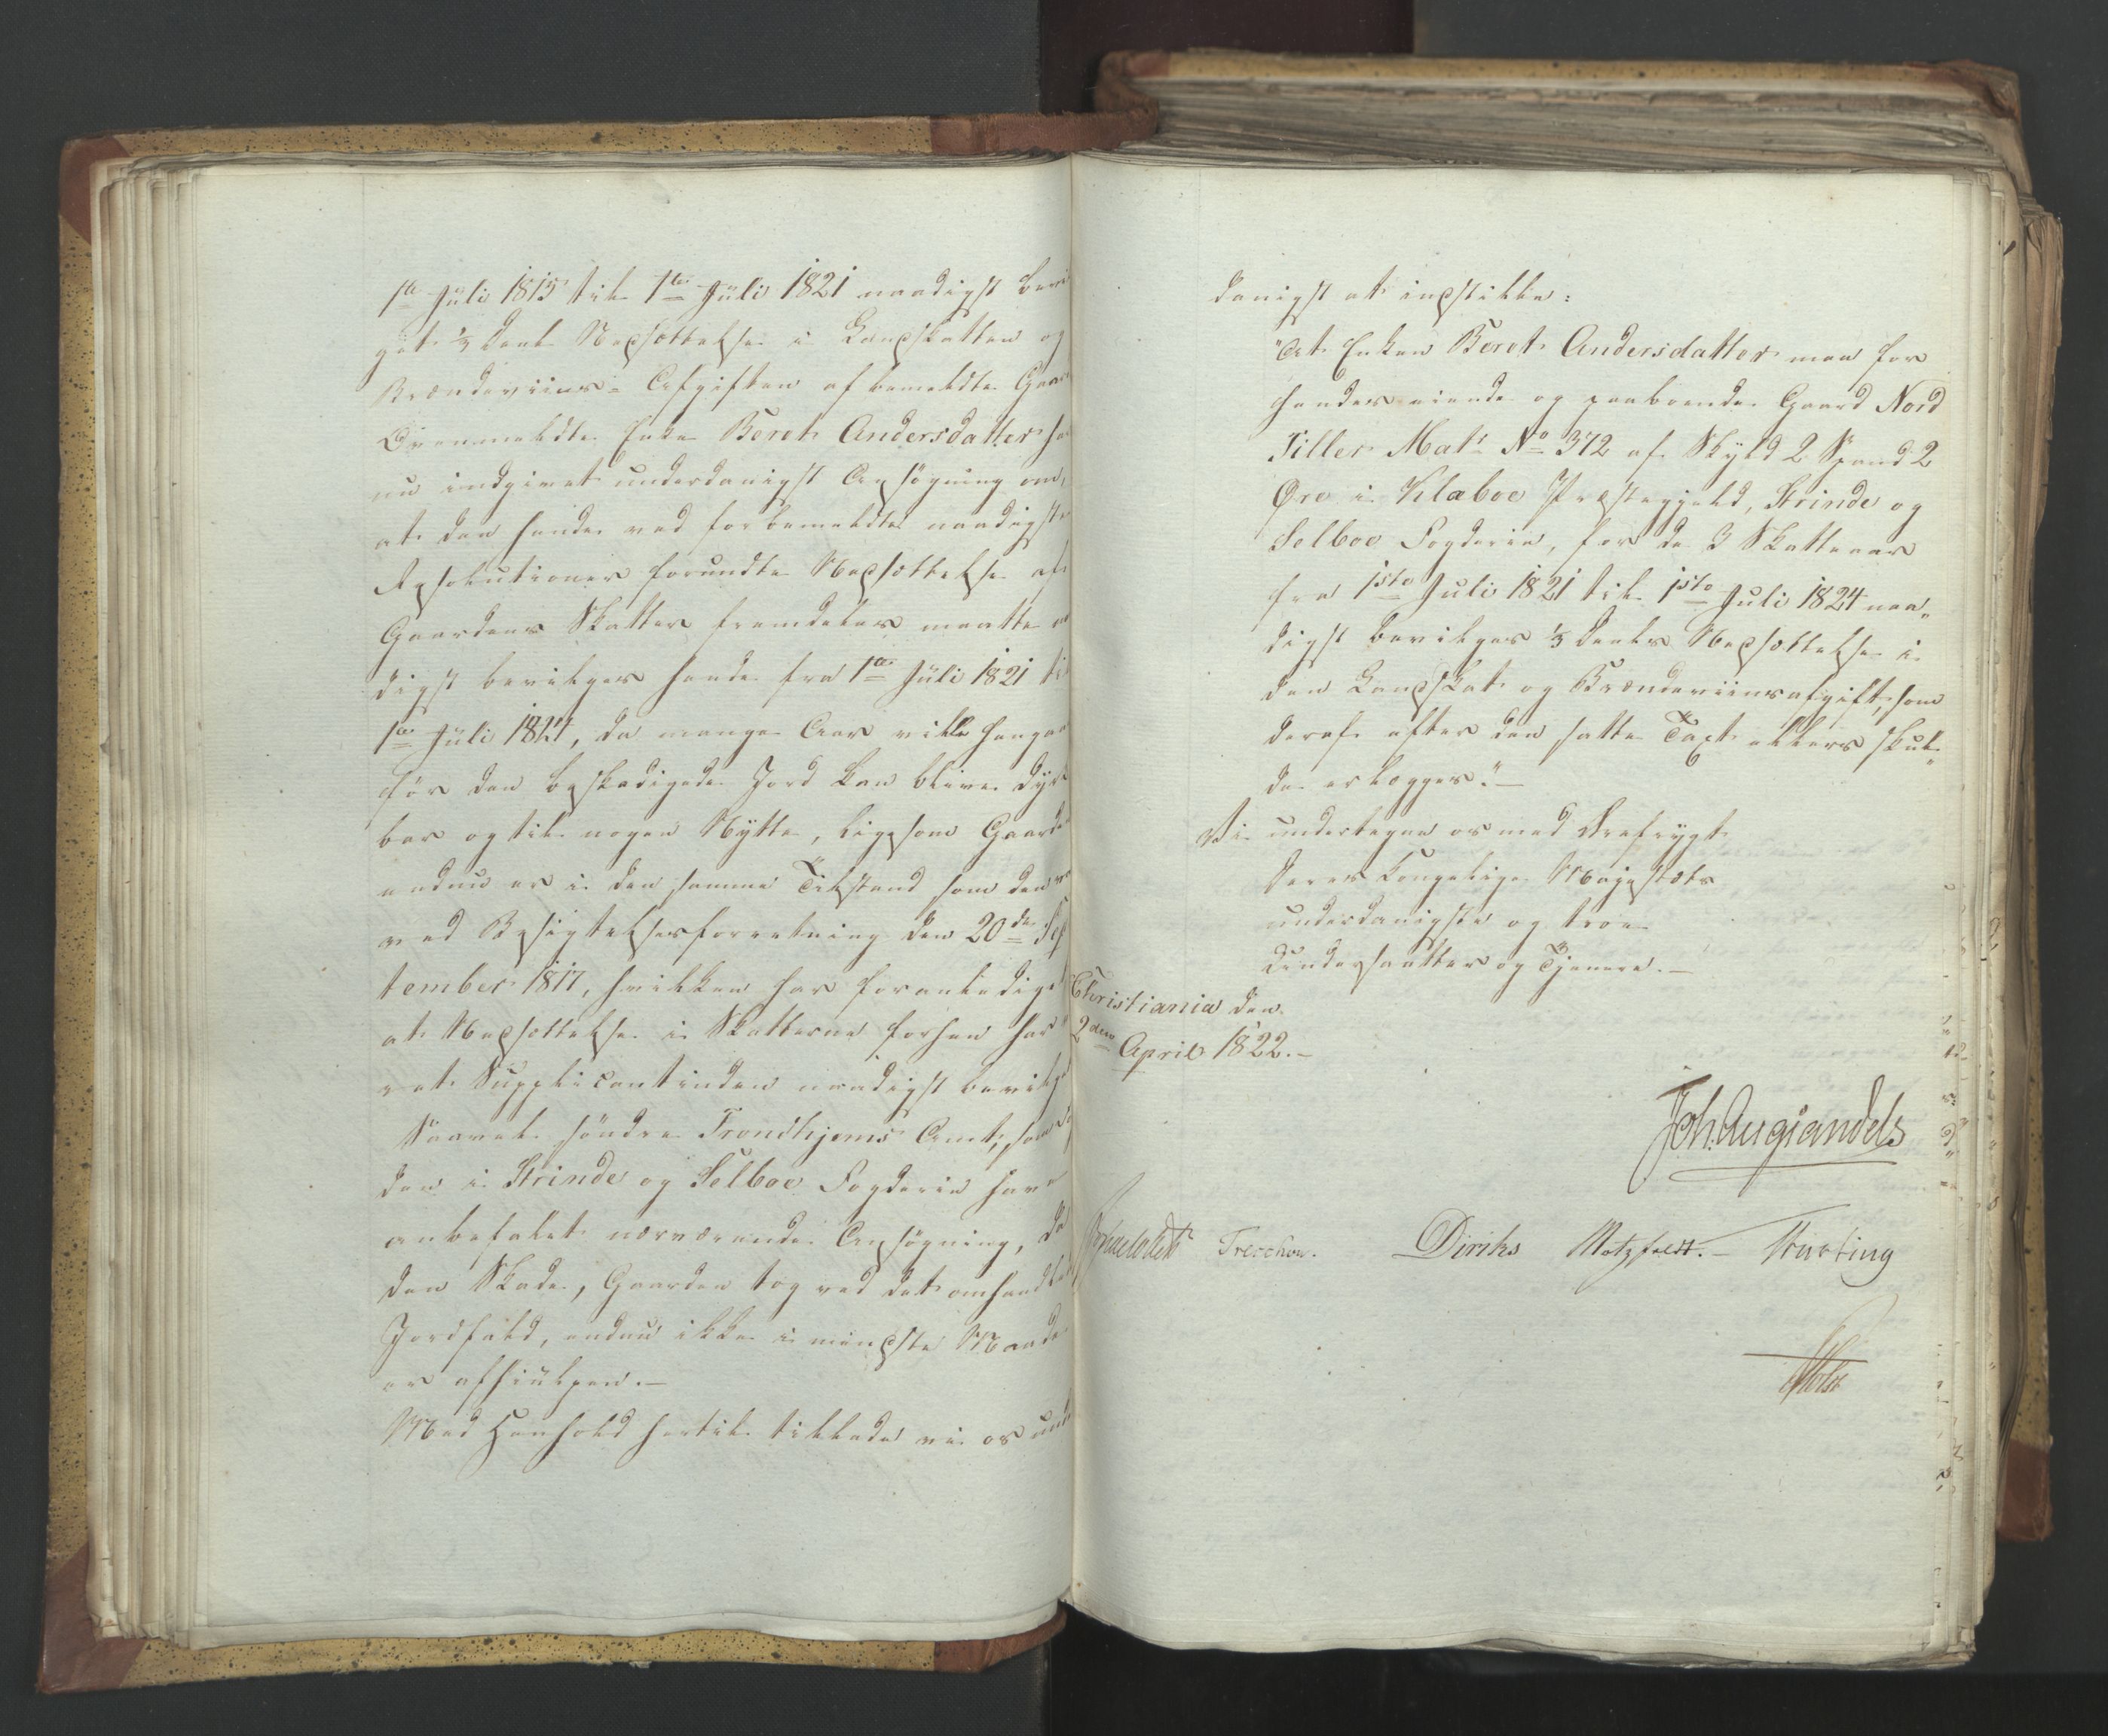 1te Juli 1815 til 1te Juli 1821 naadigst bevil
get 1/3 Deels Nedsættelse i Landskatten og
Brændeviins-Afgiften af bemeldte Gaard
Ovenmeldte Enke Beret Andersdatter ha
nu indgivet underdanigst Ansøgning om,
at den hende ved forbemeldte naadigste
Resolutioner forundte Nedsættelse af
Gaardens Skatter fremdeles maatte
digst bevilges hende fra 1te Juli 1821 til
1te Juli 1824, da mange Aar ville hengaa
før den beskadigede Jord kan blive dyrk
bar og til nogen Nytte, ligesom Gaarden
endnu er i den samme Tilstand som den var
ved Besigtelsesforretning den 20de Sep
tember 1817, hvilken har foranlediget
at Nedsættelse i Skatterne forhen har væ
ret Supplicantinden naadigst bevilget
Saavel søndre Trondhjems Amt, som
den i Strinde og Selboe Fogderie have
anbefalet nærværende Ansøgning, da
den Skade, Gaarden tog ved det omhandlede
Jordfald, endnu ikke i mindste Maade
er afhiulpen.—
Med Henhold hertil tillade vi os und
danigst at indstille:
"At Enken Beret Andersdatter maa for
hendes eiende og paaboende Gaard Nord
Tiller Matr No 372 af Skyld 2 Spand 2
Øre i Klæboe Præstegjeld, Strinde og
Selboe Fogderie, for de 3 Skatteaar
fra 1ste Juli 1821 til 1ste Juli 1824 naa„
digst bevilges 1/3 Deels Nedsættelse i
den Landskat og Brændeviinsafgift, som
deraf efter den satte Taxt ellers skul„
de erlægges."—
Vi undertegne os med Ærefrygt
Deres Kongelige Majestæts
underdanigste og troe
Undersaatter og Tjenere.—
Christiania den
2den April 1822.—
Joh. Aug Sandels
Sommerhielm Treschow. Diriks Motzfeldt.— Fasting
Holst